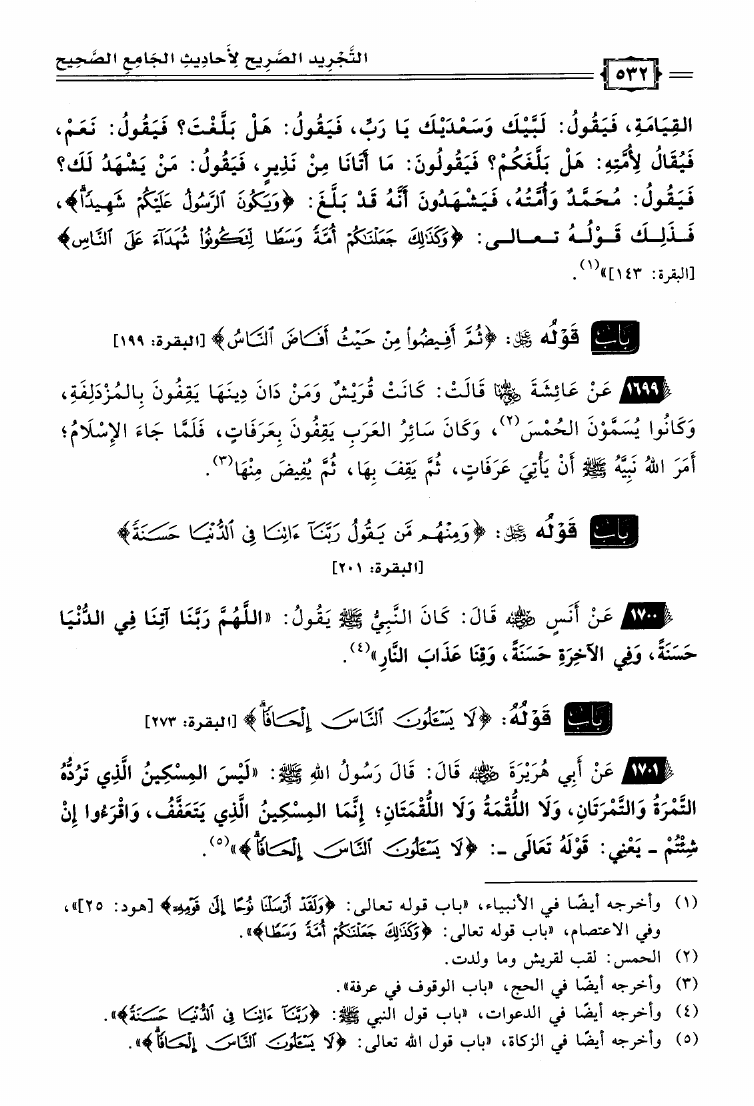 التَّجْرِيد الصَّرِيح لِأَحادِيثِ الجَامِعِ الصَّحِيح
٥٣٢
القِيَامَةِ، فَيَقُولُ: لَبَّيْكَ وَسَعْدَيْكَ يَا رَبِّ، فَيَقُولُ: هَلْ بَلَّغْتَ؟ فَيَقُولُ: نَعَمْ،
فَيُقَالُ لِأُمَّتِهِ: هَلْ بَلَّغَكُمْ؟ فَيَقُولُونَ: مَا أَتَانَا مِنْ نَذِيرٍ، فَيَقُولُ: مَنْ يَشْهَدُ لَكَ؟
فَيَقُولُ: مُحَمَّدٌ وَأُمَّتُهُ، فَيَشْهَدُونَ أَنَّهُ قَدْ بَلَّغَ: ﴿وَيَكُونَ ٱلرَّسُولُ عَلَيْكُمْ شَهِيدًاۗ﴾،
فَـذَلِـكَ قَـوْلُـهُ تـعـالـى: ﴿وَكَذَٰلِكَ جَعَلْنَٰكُمْ أُمَّةً وَسَطًا لِّتَكُونُوا۟ شُهَدَآءَ عَلَى ٱلنَّاسِ﴾
[البقرة: ١٤٣]»(١).
باب قَوْلُه ﷿: ﴿ثُمَّ أَفِيضُوا۟ مِنْ حَيْثُ أَفَاضَ ٱلنَّاسُ﴾ [البقرة: ١٩٩]
١٦٩٩ عَنْ عَائِشَةَ ﵂ قَالَتْ: كَانَتْ قُرَيْشٌ وَمَنْ دَانَ دِينَهَا يَقِفُونَ بِالمُزْدَلِفَةِ،
وَكَانُوا يُسَمَّوْنَ الحُمْسَ(٢)، وَكَانَ سَائِرُ العَرَبِ يَقِفُونَ بِعَرَفَاتٍ، فَلَمَّا جَاءَ الإِسْلَامُ؛
أَمَرَ اللهُ نَبِيَّهُ ﷺ أَنْ يَأْتِيَ عَرَفَاتٍ، ثُمَّ يَقِفَ بِهَا، ثُمَّ يُفِيضَ مِنْهَا(٣).
باب قَوْلُه ﷿: ﴿وَمِنْهُم مَّن يَقُولُ رَبَّنَآ ءَاتِنَا فِى ٱلدُّنْيَا حَسَنَةً﴾
[البقرة: ٢٠١]
١٧٠٠ عَنْ أَنَسٍ ﵁ قَالَ: كَانَ النَّبِيُّ ﷺ يَقُولُ: «اللَّهُمَّ رَبَّنَا آتِنَا فِي الدُّنْيَا
حَسَنَةً، وَفِي الآخِرَةِ حَسَنَةً، وَقِنَا عَذَابَ النَّارِ»(٤).
باب قَوْلُهُ: ﴿لَا يَسْـَٔلُونَ ٱلنَّاسَ إِلْحَافًاۗ﴾ [البقرة: ٢٧٣]
١٧٠١ عَنْ أَبِي هُرَيْرَةَ ﵁ قَالَ: قَالَ رَسُولُ اللهِ ﷺ: «لَيْسَ المِسْكِينُ الَّذِي تَرُدُّهُ
التَّمْرَةُ وَالتَّمْرَتَانِ، وَلَا اللُّقْمَةُ وَلَا اللُّقْمَتَانِ؛ إِنَّمَا المِسْكِينُ الَّذِي يَتَعَفَّفُ، وَاقْرَءُوا إِنْ
شِئْتُمْ ـ يَعْنِي: قَوْلَهُ تَعَالَى ـ: ﴿لَا يَسْـَٔلُونَ ٱلنَّاسَ إِلْحَافًاۗ﴾»(٥).
(١) وأخرجه أيضًا في الأنبياء، «باب قوله تعالى: ﴿وَلَقَدْ أَرْسَلْنَا نُوحًا إِلَىٰ قَوْمِهِۦ﴾ [هود: ٢٥]»،
وفي الاعتصام، «باب قوله تعالى: ﴿وَكَذَٰلِكَ جَعَلْنَٰكُمْ أُمَّةً وَسَطًا﴾».
(٢) الحمس: لقب لقريش وما ولدت.
(٣) وأخرجه أيضًا في الحج، «باب الوقوف في عرفة».
(٤) وأخرجه أيضًا في الدعوات، «باب قول النبي ﷺ: ﴿رَبَّنَآ ءَاتِنَا فِى ٱلدُّنْيَا حَسَنَةً﴾».
(٥) وأخرجه أيضًا في الزكاة، «باب قول الله تعالى: ﴿لَا يَسْـَٔلُونَ ٱلنَّاسَ إِلْحَافًاۗ﴾».